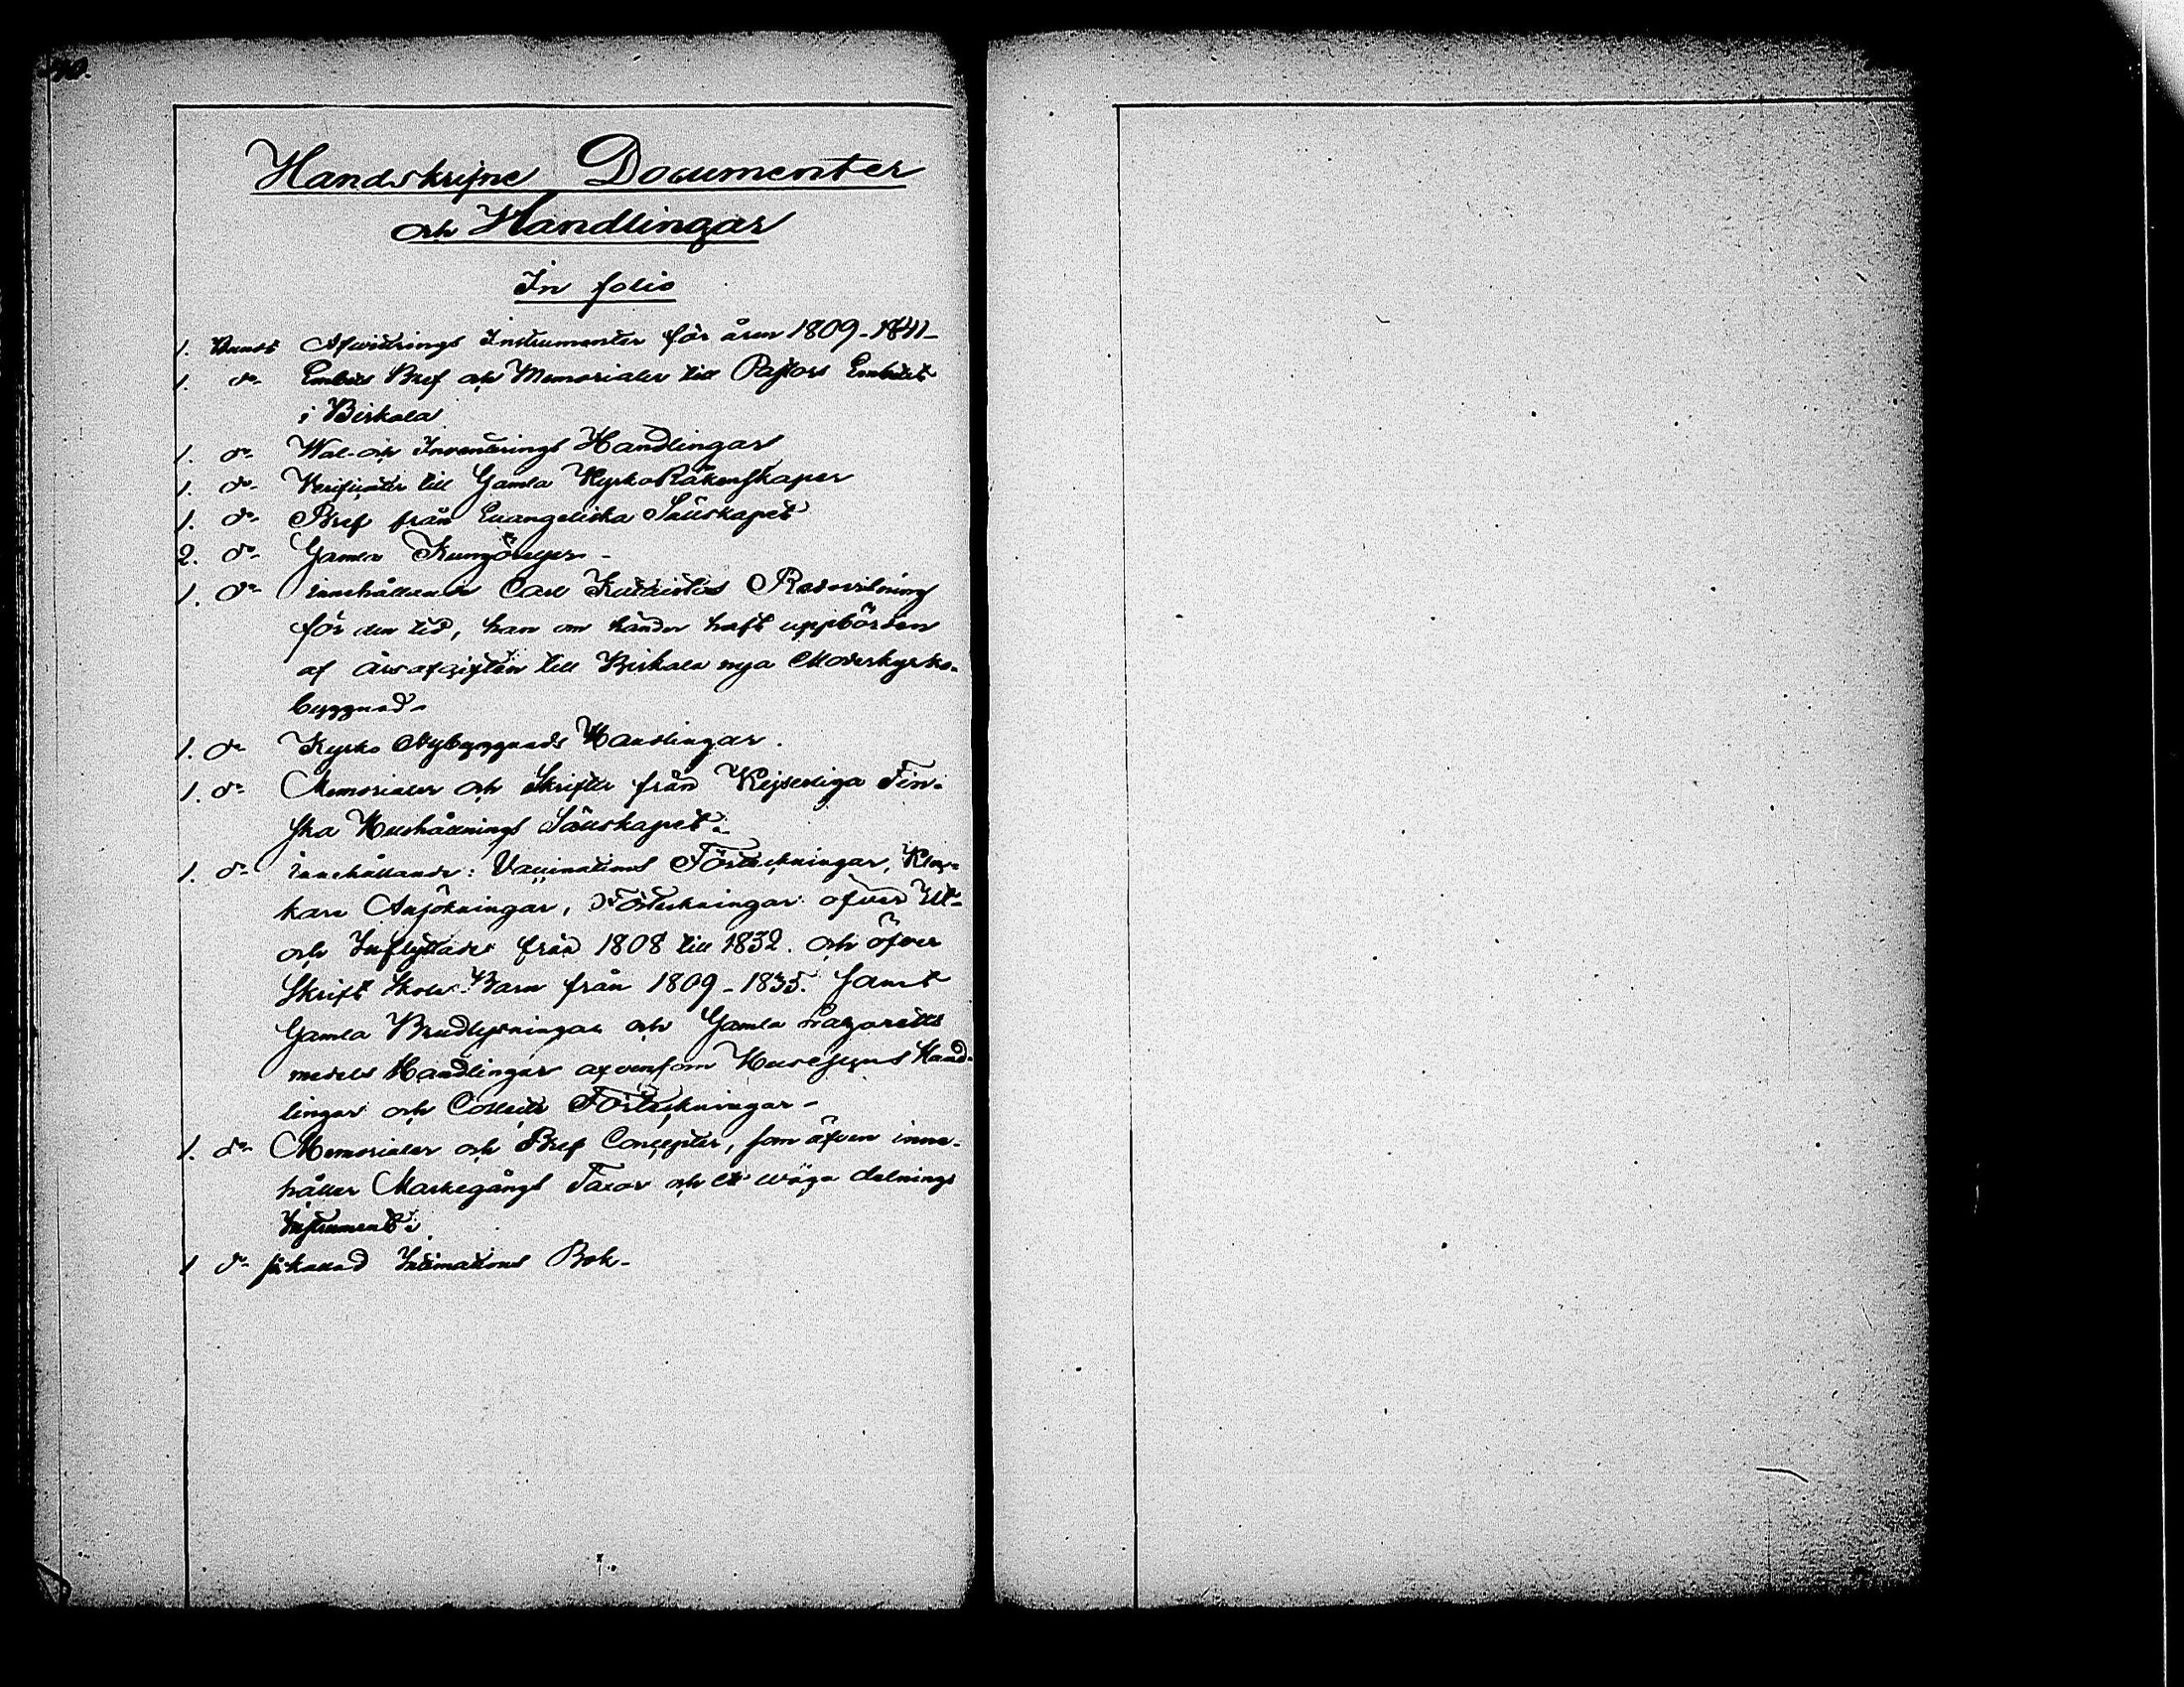 Handskrifne Documenter
och Handlingar
In folio
1. Bundt Afwittrings Instrumenter för åren 1809-1841-
1. do- Embets Bref och Memorialer till Pastors Embetet
i Birkala
1. do- Wal- och Inventerings Handlingar
1. do- Verificater till Gamla Kyrko Räkenskaper
1. do- Bref från Evangeliska Sällskapet
2. do- Gamla Kungörelser-
1. do- innehållande Carl Redovisning
för den tid, han om händer haft uppbörden
af årsafgiften till Birkala nya Moderkyrko-
byggnad-
1. do- Kyrko Nybyggnads Handlingar.
1. do- Memorialer och Skrifter från Kejserliga Fin-
ska Hushållnings Sällskapet.
1. do- innehållande: Vaccinations Förteckningar, Kloc-
kare Ansökningar, Förteckningar öfver Ut-
och Inflyttade från 1808 till 1832. och öfver
Skrift Skole-Barn från 1809-1835. samt
Gamla Brudlysningar och Gamla Lazaretts
medels Handlingar afvensom Husesyns Hand-
lingar och Collect Förteckningar-
1. do- Memorialer och Bref Concepter, som äfven inne-
håller Markegångs Taxor och et wäga delnings
Instrument.
1 do- så kallad Intimations Bok-